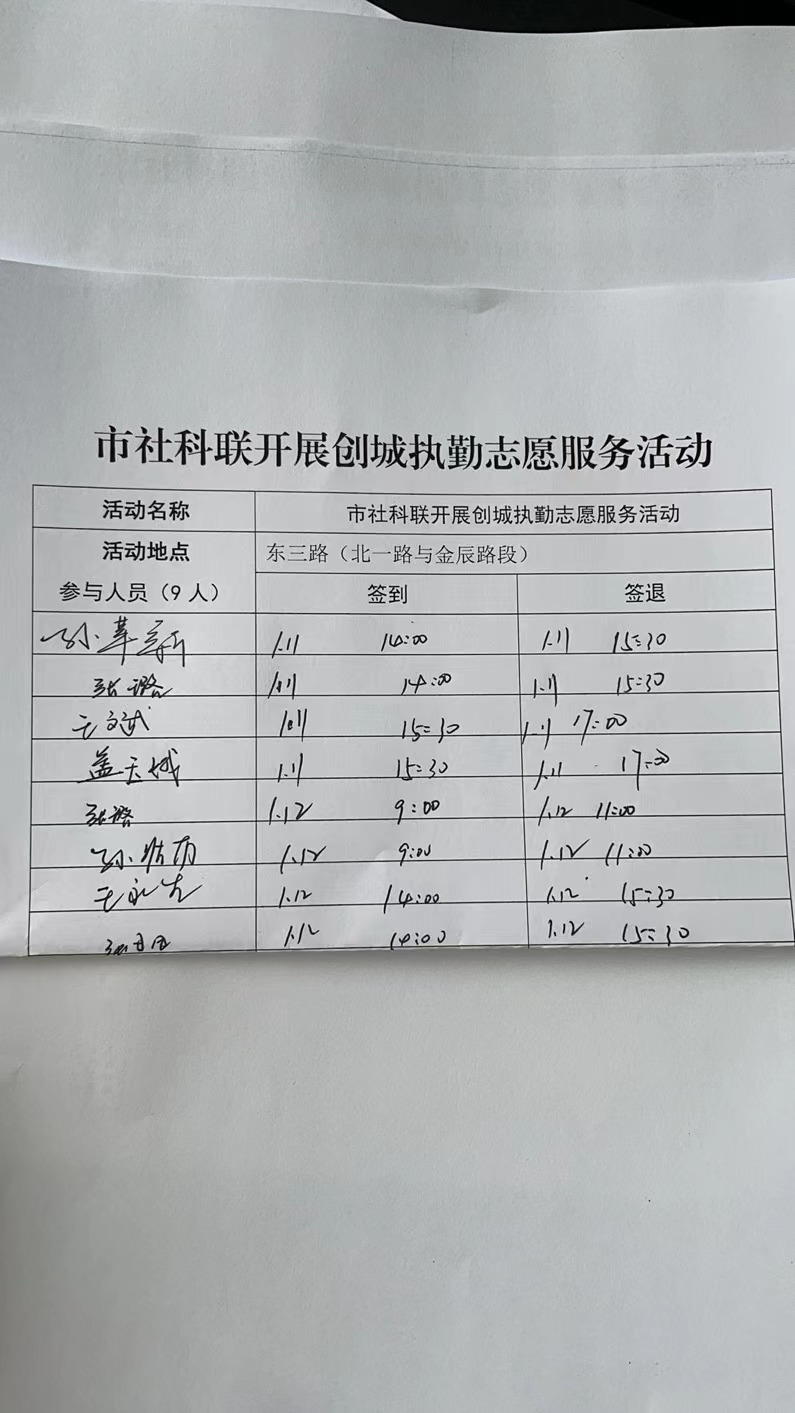 市社科联开展创城执勤志愿服务活动
活动名称 市社科联开展创城执勤志愿服务活动
活动地点 东三路（北一路与金辰路段）
参与人员（9人） 签到 签退
孙革新 1.11 14:00 1.11 15:30
张璐 1.11 14:00 1.11 15:30
王文斌 1.11 15:30 1.11 17:00
盖天城 1.11 15:30 1.11 17:00
张璐 1.12 9:00 1.12 11:00
孙 1.12 9:00 1.12 11:00
王永 1.12 14:00 1.12 15:30
1.12 14:00 1.12 15:30